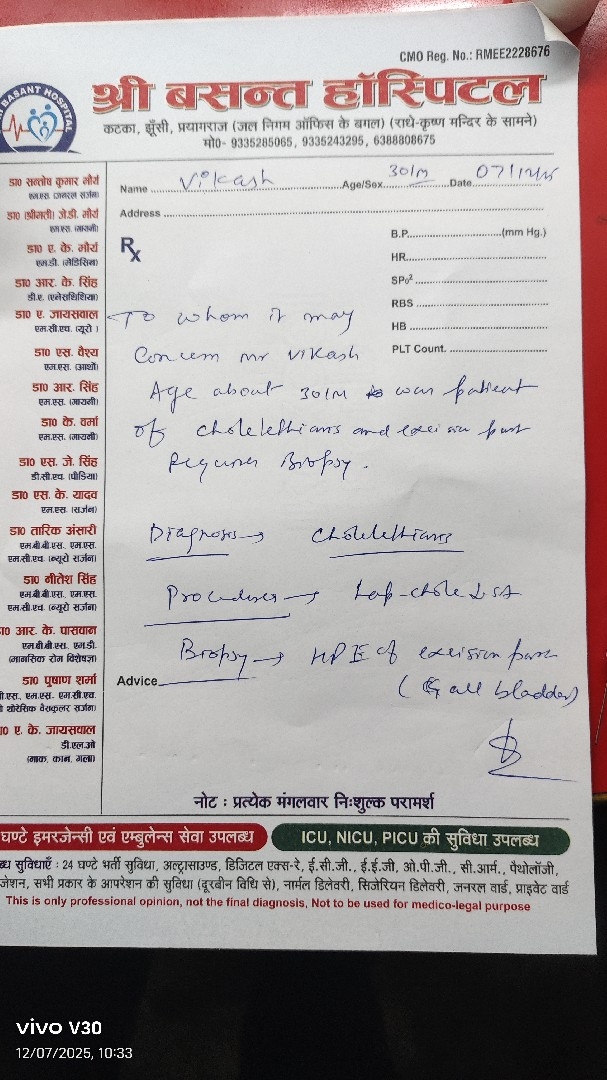 CMO Reg. No.: RMEE2228676
BASANT HOSPITAL
श्री बसन्त हॉस्पिटल
कटका, झूँसी, प्रयागराज (जल निगम ऑफिस के बगल) (राधे-कृष्ण मन्दिर के सामने)
मो0- 9335285065, 9335243295, 6388808675
Name Vikash Age/Sex 30/M Date
Address
Rx
B.P. (mm Hg.)
HR
SPo2
RBS
HB
PLT Count.
डा0 सन्तोष कुमार मौर्य
एम.एस. (जनरल सर्जन)
डा0 (श्रीमती) जे.डी. मौर्य
एम.एस. (गायनी)
डा0 ए. के. मौर्य
एम.डी. (मेडिसिन)
डा0 आर. के. सिंह
डी.ए. (एनेसथिशिया)
डा0 ए. जायसवाल
एम.सी.एच. (यूरो)
डा0 एस. वैश्य
एम.एस. (आर्थो)
डा0 आर. सिंह
एम.एस. (गायनी)
डा0 के. वर्मा
एम.एस. (गायनी)
डा0 एस. जे. सिंह
डी.सी.एच. (पीडिया)
डा0 एस. के. यादव
एम.एस. (सर्जन)
डा0 तारिक अंसारी
एम.बी.बी.एस., एम.एस.
एम.सी.एच. (न्यूरो सर्जन)
डा0 नीतेश सिंह
एम.बी.बी.एस., एम.एस.
एम.सी.एच. (न्यूरो सर्जन)
आर. के. पासवान
एम.बी.बी.एस., एम.डी.
(मानसिक रोग विशेषज्ञ)
डा0 पूषाण शर्मा
एम.एस. एम.सी.एच.
थोरेसिक वैसकुलर सर्जन)
ए. के. जायसवाल
डी.एल.ओ
(नाक, कान, गला)
To whom it may
Concern mr Vikash
Age about 30/M was patient
of and part
Requires Biopsy.
Diagnosis →
Procedures → Lap-chole
Biopsy → HPE of excision part
(Gall bladder)
Advice
नोट : प्रत्येक मंगलवार निःशुल्क परामर्श
घण्टे इमरजेन्सी एवं एम्बुलेन्स सेवा उपलब्ध
ICU, NICU, PICU की सुविधा उपलब्ध
सुविधाएँ : 24 घण्टे भर्ती सुविधा, अल्ट्रासाउण्ड, डिजिटल एक्स-रे, ई.सी.जी., ई.ई.जी, ओ.पी.जी., सी.आर्म., पैथोलॉजी,
सभी प्रकार के आपरेशन की सुविधा (दूरबीन विधि से), नार्मल डिलेवरी, सिजेरियन डिलेवरी, जनरल वार्ड, प्राइवेट वार्ड
This is only professional opinion, not the final diagnosis, Not to be used for medico-legal purpose
vivo V30
12/07/2025, 10:33